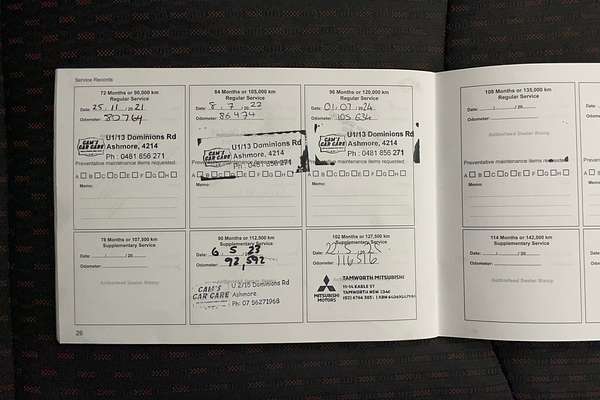 Service Records
72 Months or 90,000 km
Regular Service
Date: 25.11./20 21
Odometer: 80764
CAM'S CAR CARE
U1/13 Dominions Rd
Ashmore, 4214
Ph : 0481 856 271
Preventative maintenance items requested:
A B C D E F G H
Memo:
84 Months or 105,000 km
Regular Service
Date: 8.7./20 22
Odometer: 86474
CAM'S CAR CARE
U1/13 Dominions Rd
Ashmore, 4214
Ph : 0481 856 271
maintenance items requested:
A B C D E F G H
Memo:
96 Months or 120,000 km
Regular Service
Date: 01.07./20 24
Odometer: 105 634
CAM'S CAR CARE
U1/13 Dominions Rd
Ashmore, 4214
Ph : 0481 856 271
maintenance items requested:
A B C D E F G H
Memo:
78 Months or 97,500 km
Supplementary Service
Date: / /20
Odometer:
Authorised Dealer Stamp
90 Months or 112,500 km
Supplementary Service
Date: 6.5./23
Odometer: 92,592
CAM'S
CAR CARE
U 2/15 Dominions Rd
Ashmore
Ph: 07 56271968
102 Months or 127,500 km
Supplementary Service
Date: 22.5./25
Odometer: 116516
MITSUBISHI
MOTORS
TAMWORTH MITSUBISHI
11-14 KABLE ST
TAMWORTH NSW 2340
26
108 Months or 135,000 km
Regular Service
Date: / /20
Odometer:
Authorised Dealer Stamp
Preventative maintenance items
A B C D E F G H
Memo:
114 Months or 142,500 km
Supplementary Service
Date: / /20
Odometer:
Authorised Dealer Stamp